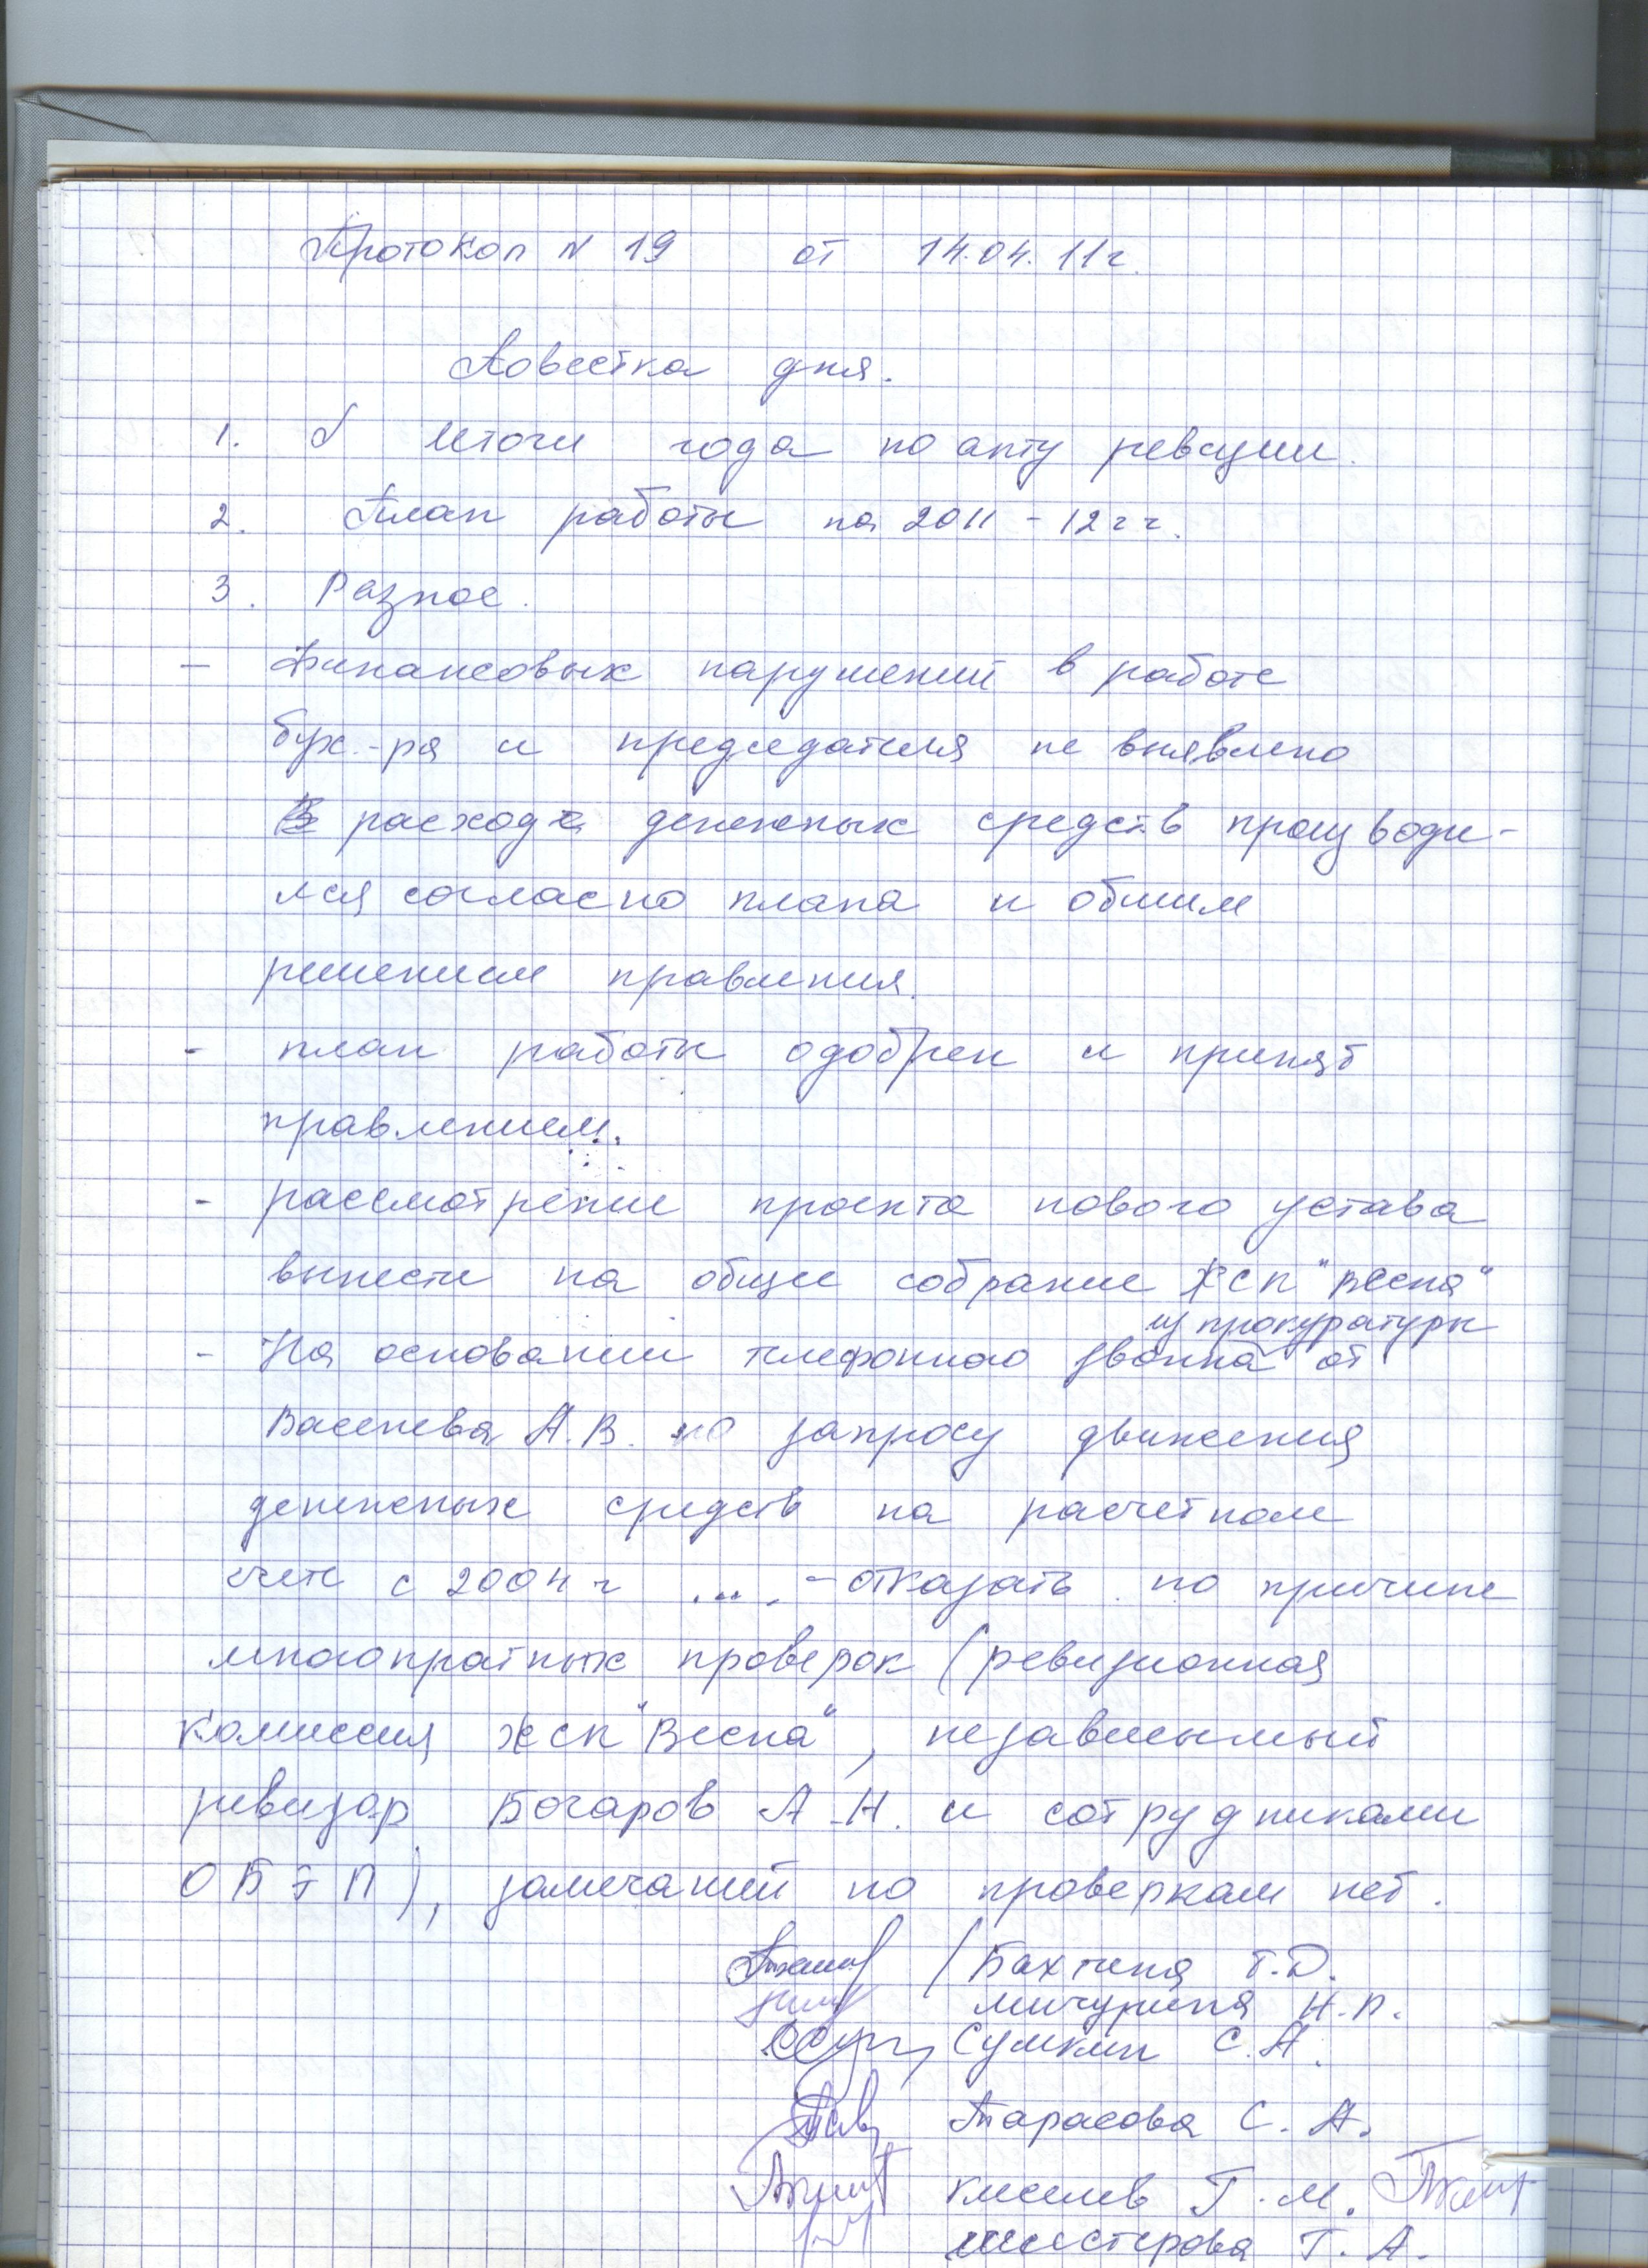 Протокол N 19 от 14.04.11г.
Повестка дня.
1. Итоги года по акту ревизии.
2. План работы на 2011-12гг.
3. Разное.
- Финансовых нарушений в работе
бух.-ра и председателя не выявлено
расход денежных средств производи-
лся согласно плана и общим
решением правления.
- план работы одобрен и принят
правлением.
- рассмотрение проекта нового устава
вынести на общее собрание ЖСК "Весна"
из прокуратуры
- На основании телефонного звонка от
Васенева А.В. по запросу движения
денежных средств на расчетном
счете с 2004г .... - отказать по причине
многократных проверок (ревизионная
комиссия ЖСК "Весна", независымый
ревизор Бочаров А.Н. и сотрудниками
ОБЭП), замечаний по проверкам нет.
/Бахтина Т.Д.
Мичурина Н.П.
Сумкин С.А.
Тарасова С.А.
Киселев Г.М.
Шестерова Т.А.